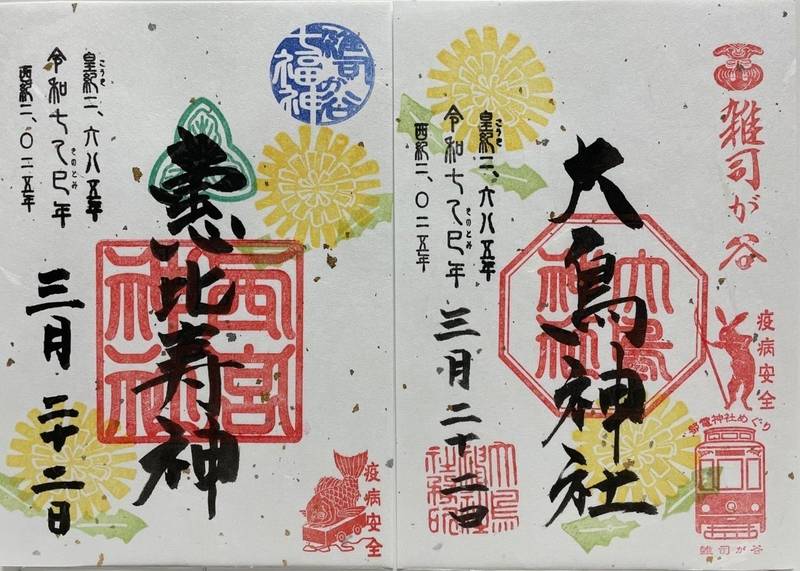 雑司が谷
疫病安全
都電神社めぐり
雑司が谷
大鳥神社
大鳥神社
皇紀二、六八五年
こうき
令和七乙巳年
きのとみ
西紀二、〇二五年
三月二十二日
大鳥神社社務所
雑司が谷七福神
疫病安全
惠比寿神
西宮神社
皇紀二、六八五年
こうき
令和七乙巳年
きのとみ
西紀二、〇二五年
三月二十二日